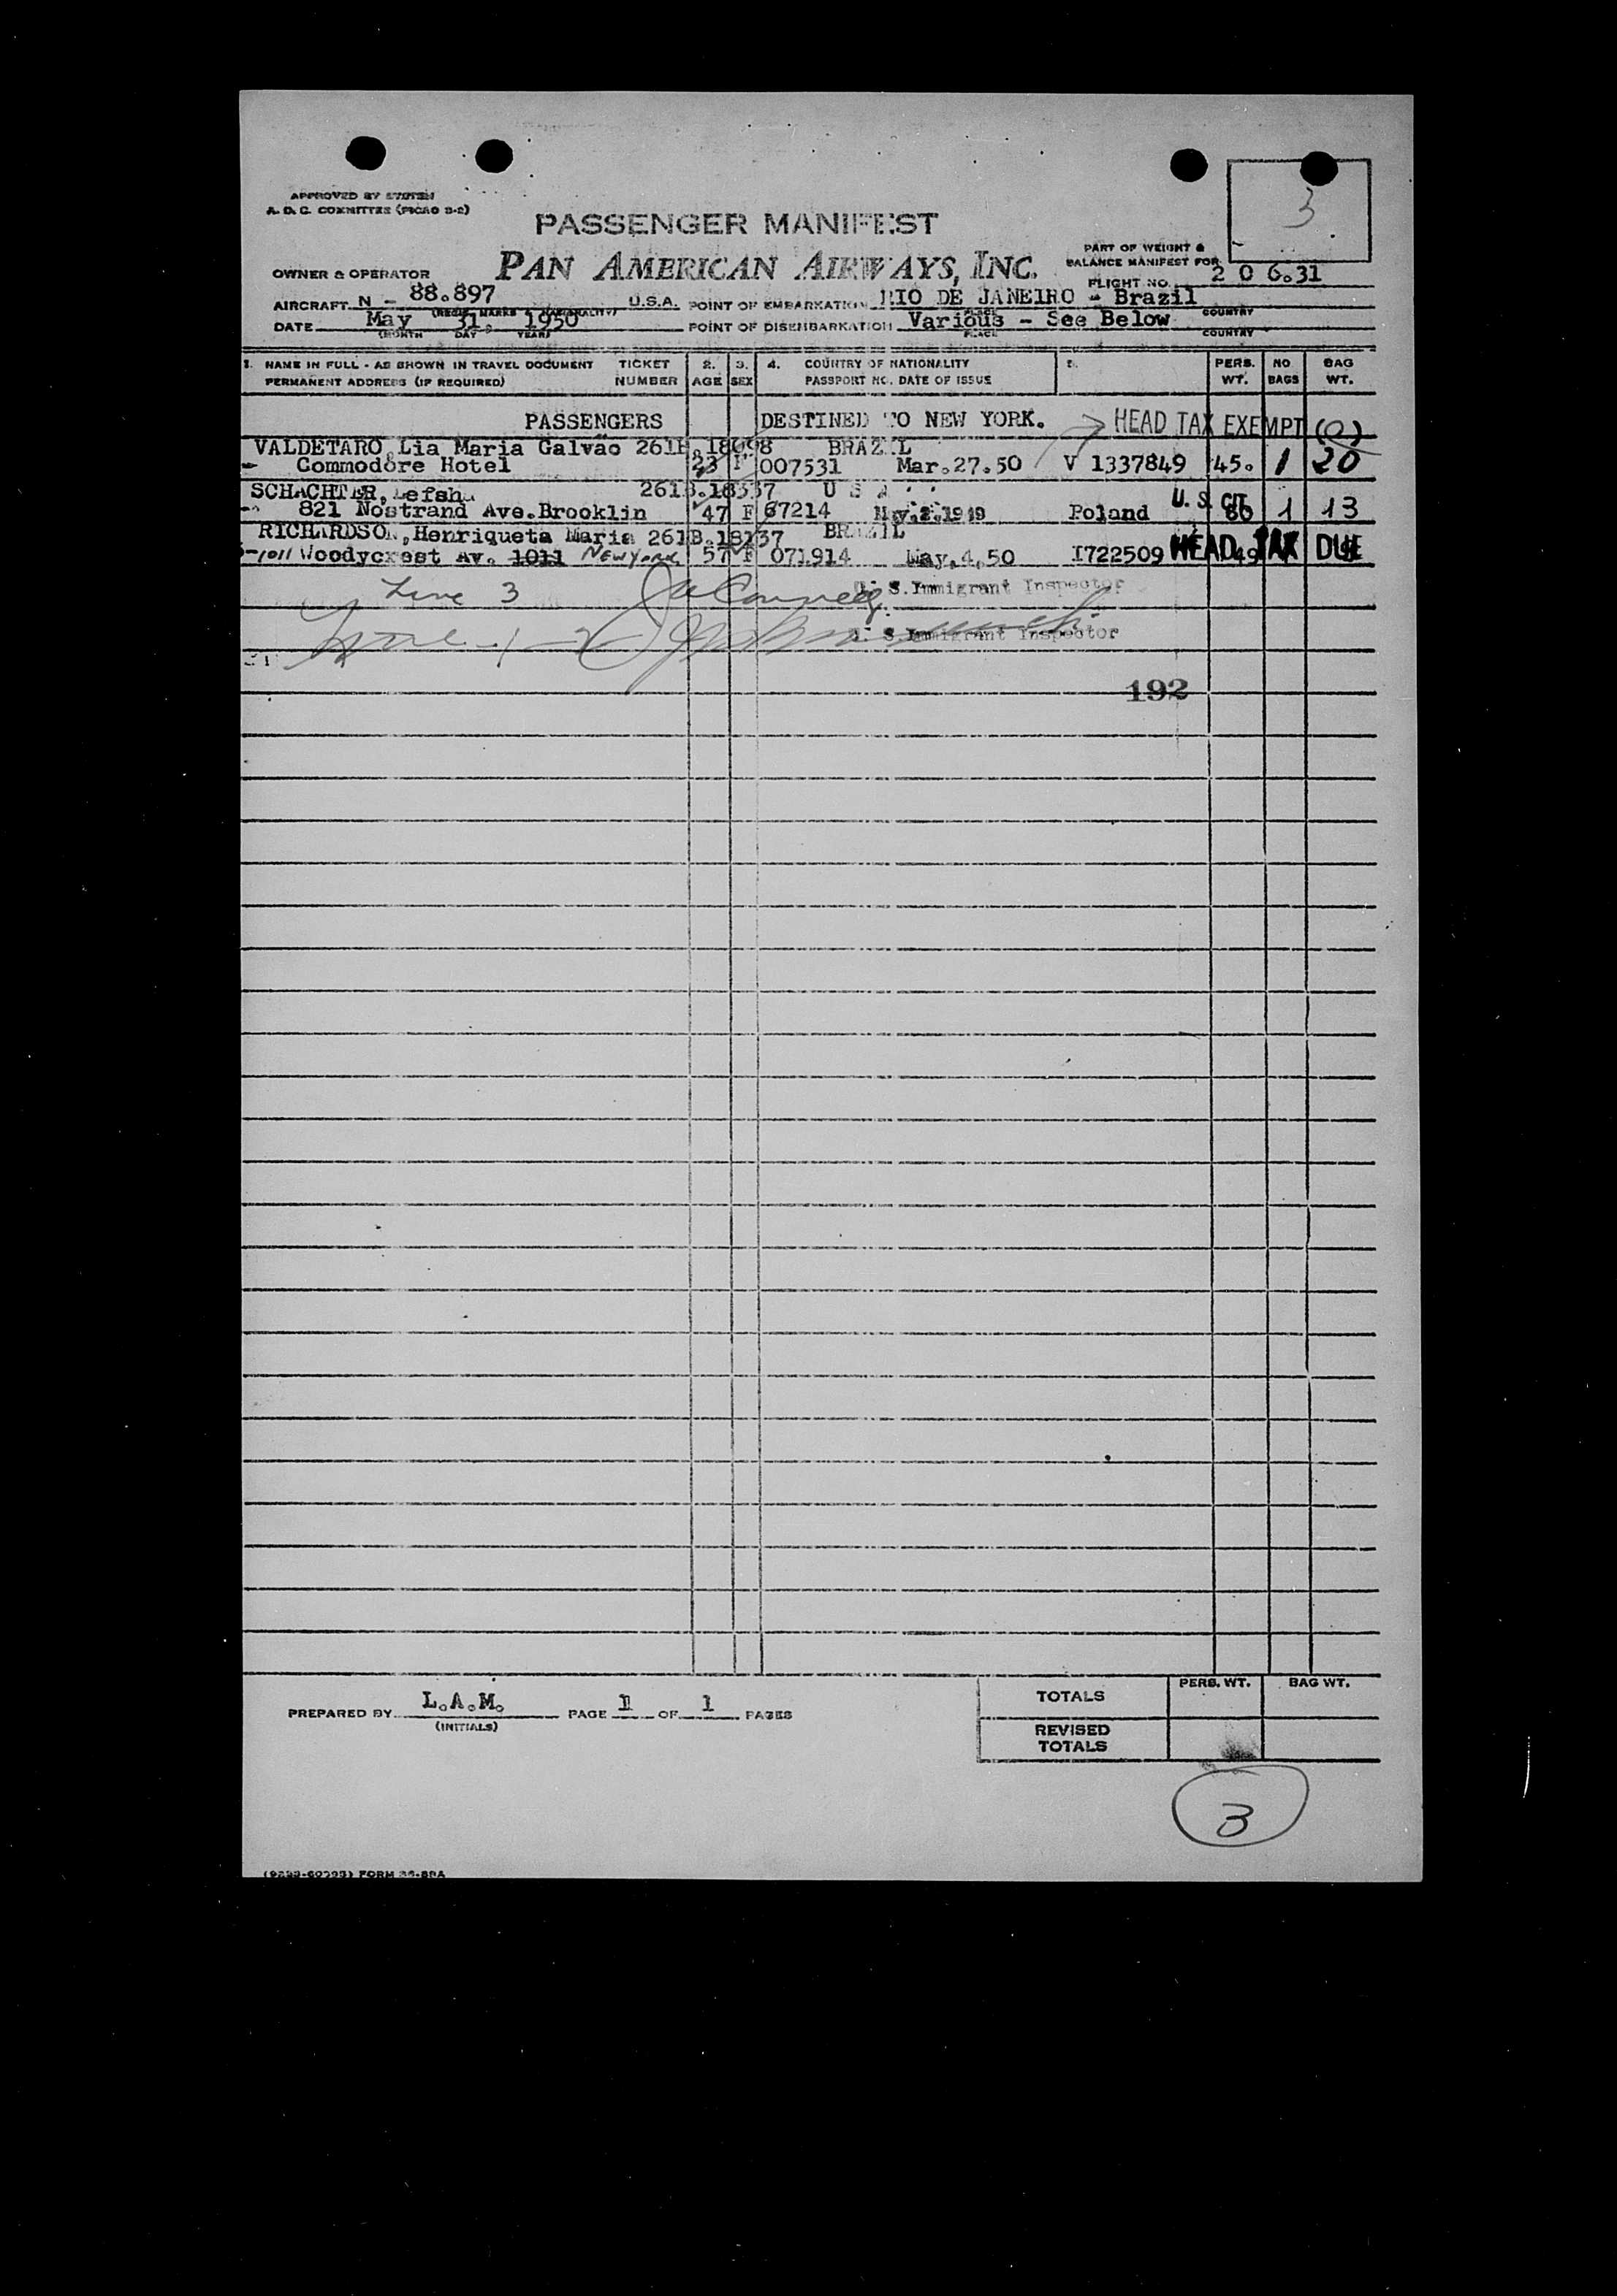 3
APPROVED BY SYSTEM
A. O. C. COMMITTEE (PICAO 3-2)
PASSENGER MANIFEST
PAN AMERICAN AIRWAYS, INC.
PART OF WEIGHT &
BALANCE MANIFEST FOR
OWNER & OPERATOR
FLIGHT NO. 2 0 6.31
AIRCRAFT N - 88.897 U.S.A. POINT OF EMBARKATION RIO DE JANEIRO - Brazil
(REGIS. MARKS & NATIONALITY) PLACE COUNTRY
DATE May 31, 1950 POINT OF DISEMBARKATION Various - See Below
(MONTH DAY YEAR) PLACE COUNTRY
1. NAME IN FULL - AS SHOWN IN TRAVEL DOCUMENT TICKET 2. 3. 4. COUNTRY OF NATIONALITY 5. PERS. NO BAG
PERMANENT ADDRESS (IF REQUIRED) NUMBER AGE SEX PASSPORT NO. DATE OF ISSUE WT. BAGS WT.
PASSENGERS DESTINED TO NEW YORK. HEAD TAX EXEMPT (Q)
VALDETARO, Lia Maria Galvão 261B.18098 BRAZIL
Commodore Hotel 23 F 007531 Mar.27.50 V 1337849 45. 1 20
SCHACHTER, 261B.18337 U S A
821 Nostrand Ave.Brooklin 47 F 67214 1949 Poland U. S. CIT. 80 1 13
RICHARDSON, Henriqueta Maria 261B.18137 BRAZIL
1011 Woodycrest Av. 1011 New York 57 F 071914 May,4,50 I722509 HEAD TAX DUE 49
Line 3 U. S. Immigrant Inspector
U. S. Immigrant Inspector
192
PREPARED BY L.A.M. PAGE 1 OF 1 PAGES
(INITIALS)
PERS. WT. BAG WT.
TOTALS
REVISED
TOTALS
3